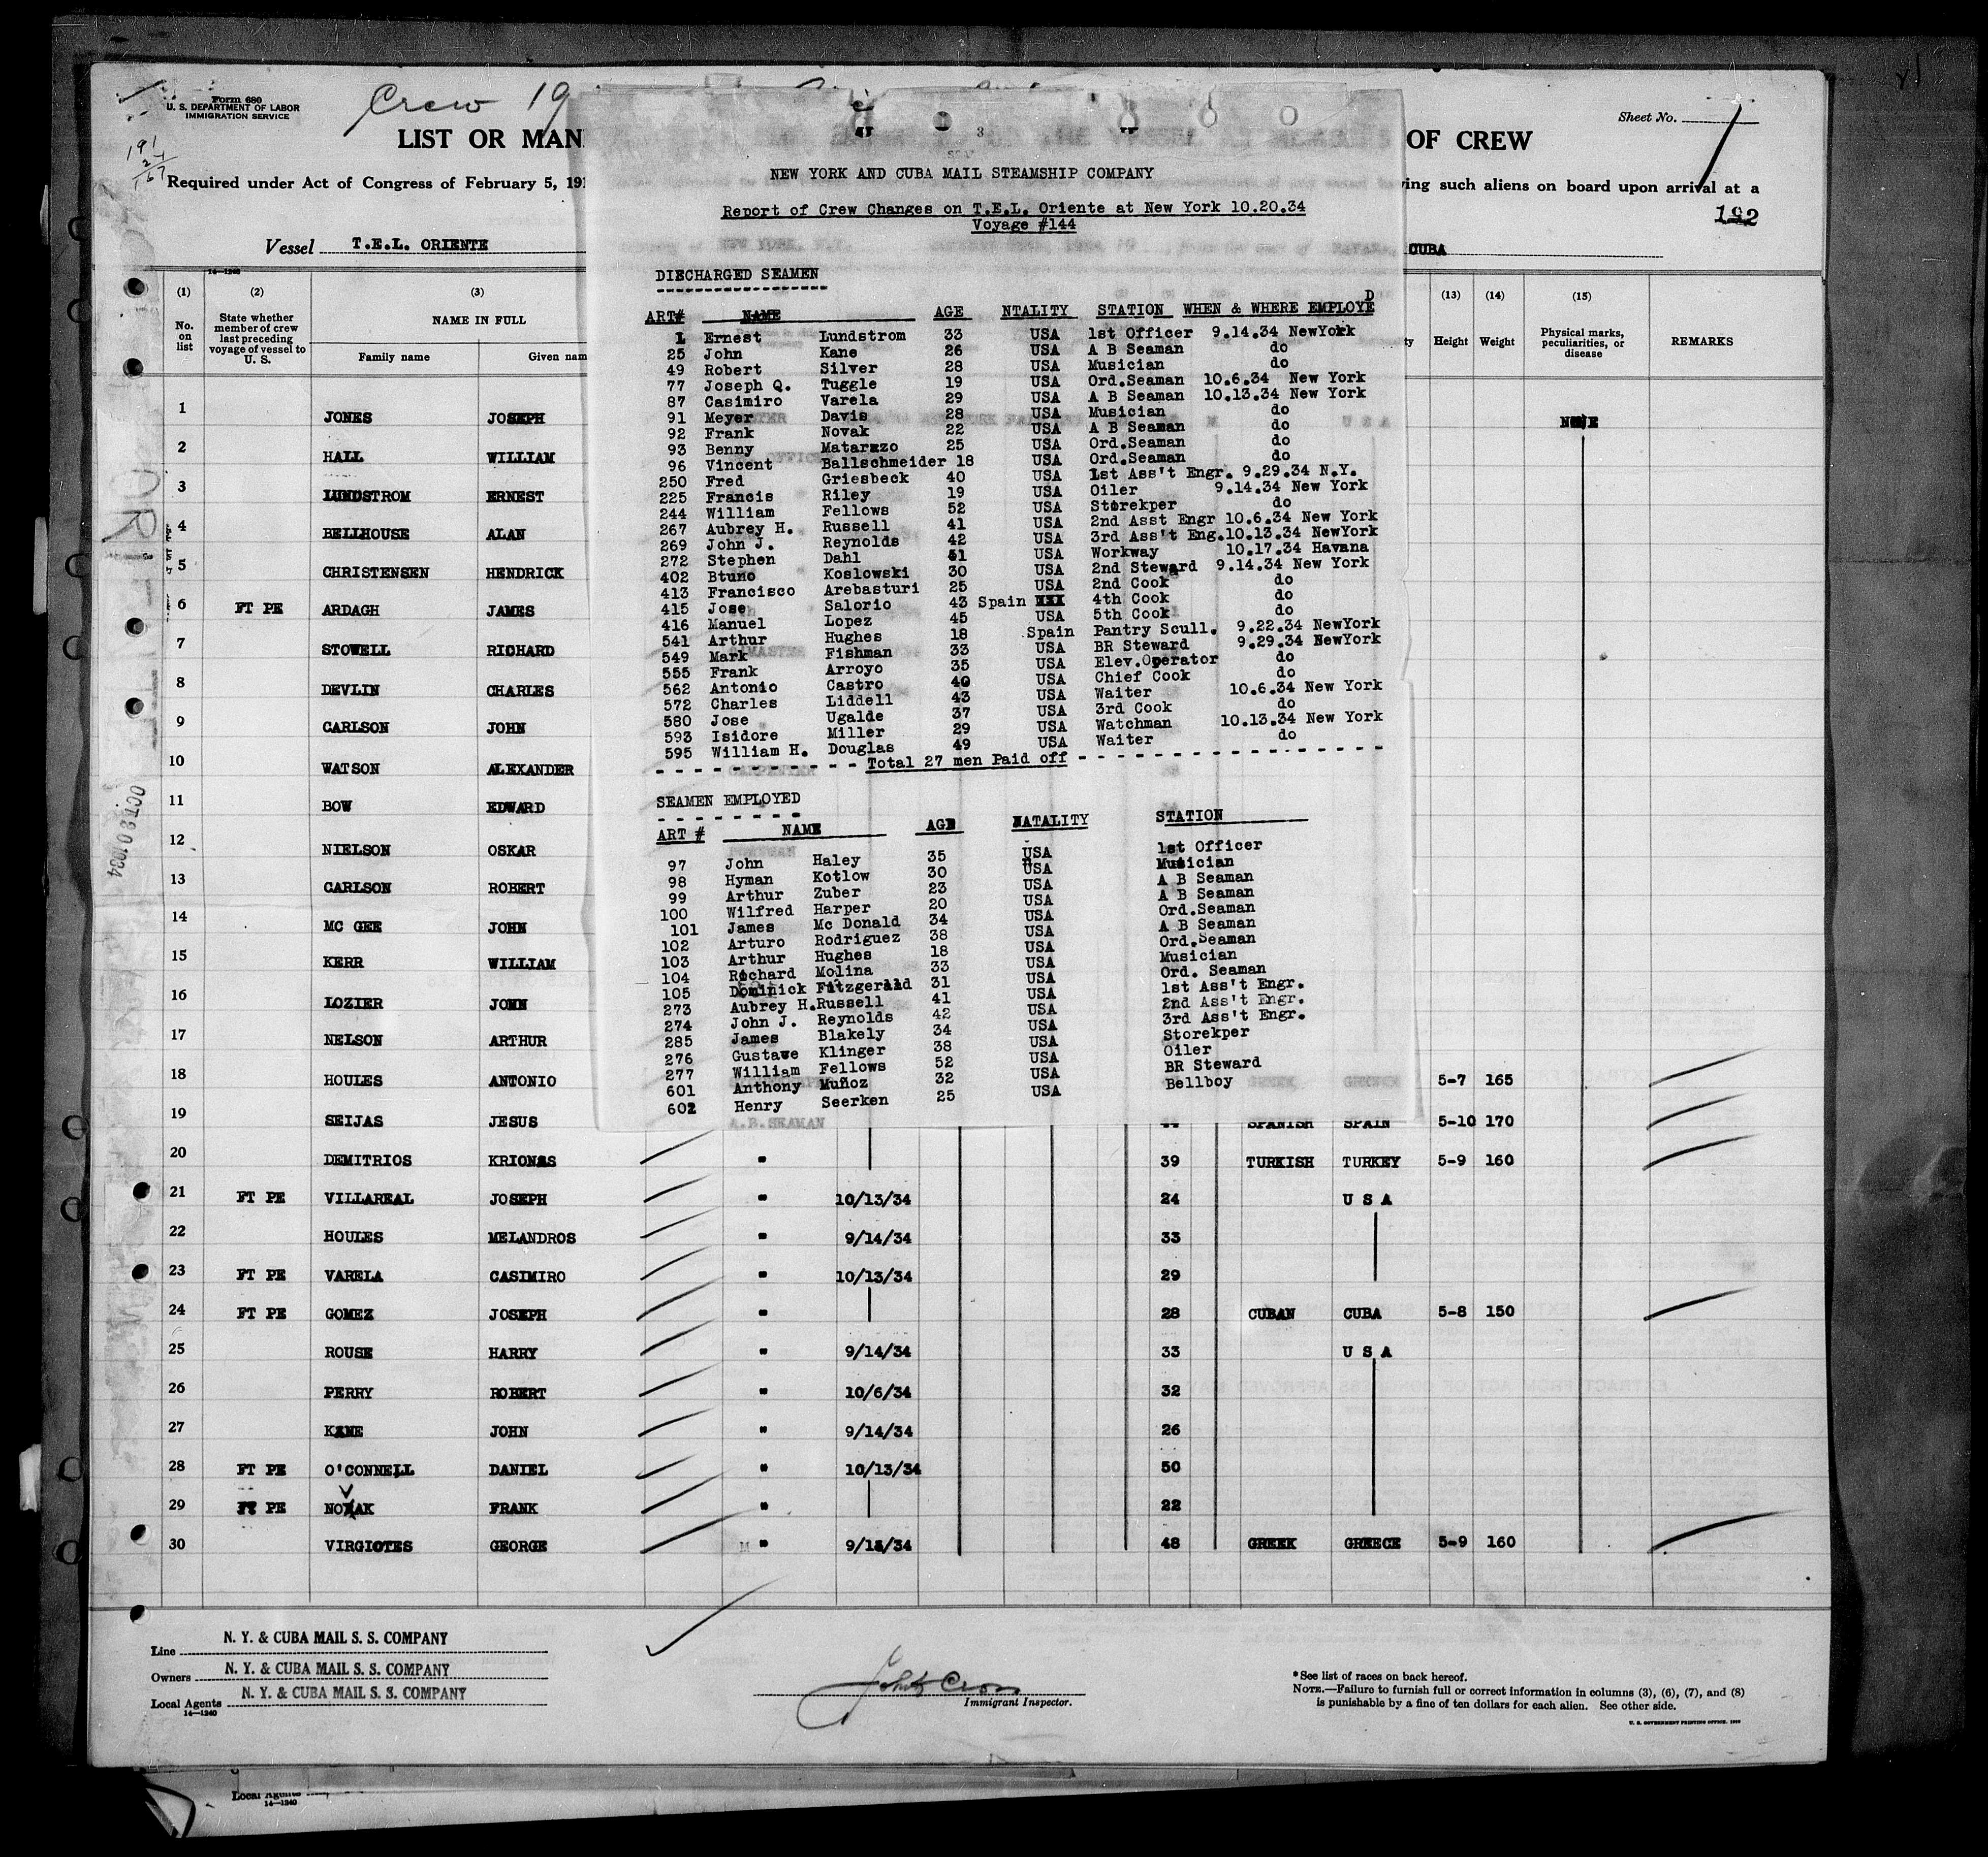 Form 680
U. S. DEPARTMENT OF LABOR
IMMIGRATION SERVICE
Crew 19
Sheet No. 1
LIST OR MAN
OF CREW
Required under Act of Congress of February 5, 191
ing such aliens on board upon arrival at a
192
Vessel T.E.L. ORIENTE
CUBA
NEW YORK AND CUBA MAIL STEAMSHIP COMPANY
Report of Crew Changes on T.E.L. Oriente at New York 10.20.34
Voyage #144
DIECHARGED SEAMEN
ART# NAME AGE NTALITY STATION WHEN & WHERE EMPLOYED
1 Ernest Lundstrom 33 USA 1st Officer 9.14.34 NewYork
25 John Kane 26 USA A B Seaman do
49 Robert Silver 28 USA Musician do
77 Joseph Q. Tuggle 19 USA Ord.Seaman 10.6.34 New York
87 Casimiro Varela 29 USA A B Seaman 10.13.34 New York
91 Meyer Davis 28 USA Musician do
92 Frank Novak 22 USA A B Seaman do
93 Benny Matarazzo 25 USA Ord.Seaman do
96 Vincent Ballschmeider 18 USA Ord.Seaman do
250 Fred Griesbeck 40 USA 1st Ass't Engr. 9.29.34 N.Y.
225 Francis Riley 19 USA Oiler 9.14.34 New York
244 William Fellows 52 USA Storekper do
267 Aubrey H. Russell 41 USA 2nd Asst Engr 10.6.34 New York
269 John J. Reynolds 42 USA 3rd Ass't Eng.10.13.34 NewYork
272 Stephen Dahl 51 USA Workway 10.17.34 Havana
402 Btuno Koslowski 30 USA 2nd Steward 9.14.34 New York
413 Francisco Arebasturi 25 USA 2nd Cook do
415 Jose Salorio 43 Spain 4th Cook do
416 Manuel Lopez 45 USA 5th Cook do
541 Arthur Hughes 18 Spain Pantry Scull. 9.22.34 NewYork
549 Mark Fishman 33 USA BR Steward 9.29.34 NewYork
555 Frank Arroyo 35 USA Elev.Operator do
562 Antonio Castro 40 USA Chief Cook do
572 Charles Liddell 43 USA Waiter 10.6.34 New York
580 Jose Ugalde 37 USA 3rd Cook do
593 Isidore Miller 29 USA Watchman 10.13.34 New York
595 William H. Douglas 49 USA Waiter do
Total 27 men Paid off
SEAMEN EMPLOYED
ART # NAME AGE NATALITY STATION
97 John Haley 35 USA 1st Officer
98 Hyman Kotlow 30 USA Musician
99 Arthur Zuber 23 USA A B Seaman
100 Wilfred Harper 20 USA A B Seaman
101 James Mc Donald 34 USA Ord.Seaman
102 Arturo Rodriguez 38 USA A B Seaman
103 Arthur Hughes 18 USA Ord.Seaman
104 Rochard Molina 33 USA Musician
105 Dominick Fitzgerald 31 USA Ord. Seaman
273 Aubrey H.Russell 41 USA 1st Ass't Engr.
274 John J. Reynolds 42 USA 2nd Ass't Engr.
285 James Blakely 34 USA 3rd Ass't Engr.
276 Gustave Klinger 38 USA Storekper
277 William Fellows 52 USA Oiler
601 Anthony Muñoz 32 USA BR Steward
602 Henry Seerken 25 USA Bellboy
14—1240
(1) (2) (3) (13) (14) (15)
No. on list
State whether member of crew last preceding voyage of vessel to U. S.
NAME IN FULL
Family name Given nam
ty Height Weight
Physical marks, peculiarities, or disease
REMARKS
1 JONES JOSEPH NONE
2 HALL WILLIAM
3 LUNDSTROM ERNEST
4 BELLHOUSE ALAN
5 CHRISTENSEN HENDRICK
6 FT PE ARDAGH JAMES
7 STOWELL RICHARD
8 DEVLIN CHARLES
9 CARLSON JOHN
10 WATSON ALEXANDER
11 BOW EDWARD
12 NIELSON OSKAR
13 CARLSON ROBERT
14 MC GEE JOHN
15 KERR WILLIAM
16 LOZIER JOHN
17 NELSON ARTHUR
18 HOULES ANTONIO GREEK GREECE 5-7 165
19 SEIJAS JESUS A.B.SEAMAN SPANISH SPAIN 5-10 170
20 DEMITRIOS KRIONAS " 39 TURKISH TURKEY 5-9 160
21 FT PE VILLAREAL JOSEPH " 10/13/34 24 U S A
22 HOULES MELANDROS " 9/14/34 33
23 FT PE VARELA CASIMIRO " 10/13/34 29
24 FT PE GOMEZ JOSEPH " 28 CUBAN CUBA 5-8 150
25 ROUSE HARRY " 9/14/34 33 U S A
26 PERRY ROBERT " 10/6/34 32
27 KANE JOHN " 9/14/34 26
28 FT PE O'CONNELL DANIEL " 10/13/34 50
29 FT PE NOVAK FRANK " 22
30 VIRGIOTES GEORGE " 9/15/34 48 GREEK GREECE 5-9 160
OCT 20 1934
Line N. Y. & CUBA MAIL S. S. COMPANY
Owners N. Y. & CUBA MAIL S. S. COMPANY
Local Agents N. Y. & CUBA MAIL S. S. COMPANY
14—1240
Immigrant Inspector.
*See list of races on back hereof.
NOTE.—Failure to furnish full or correct information in columns (3), (6), (7), and (8)
is punishable by a fine of ten dollars for each alien. See other side.
U. S. GOVERNMENT PRINTING OFFICE
Local Agents
14—1240